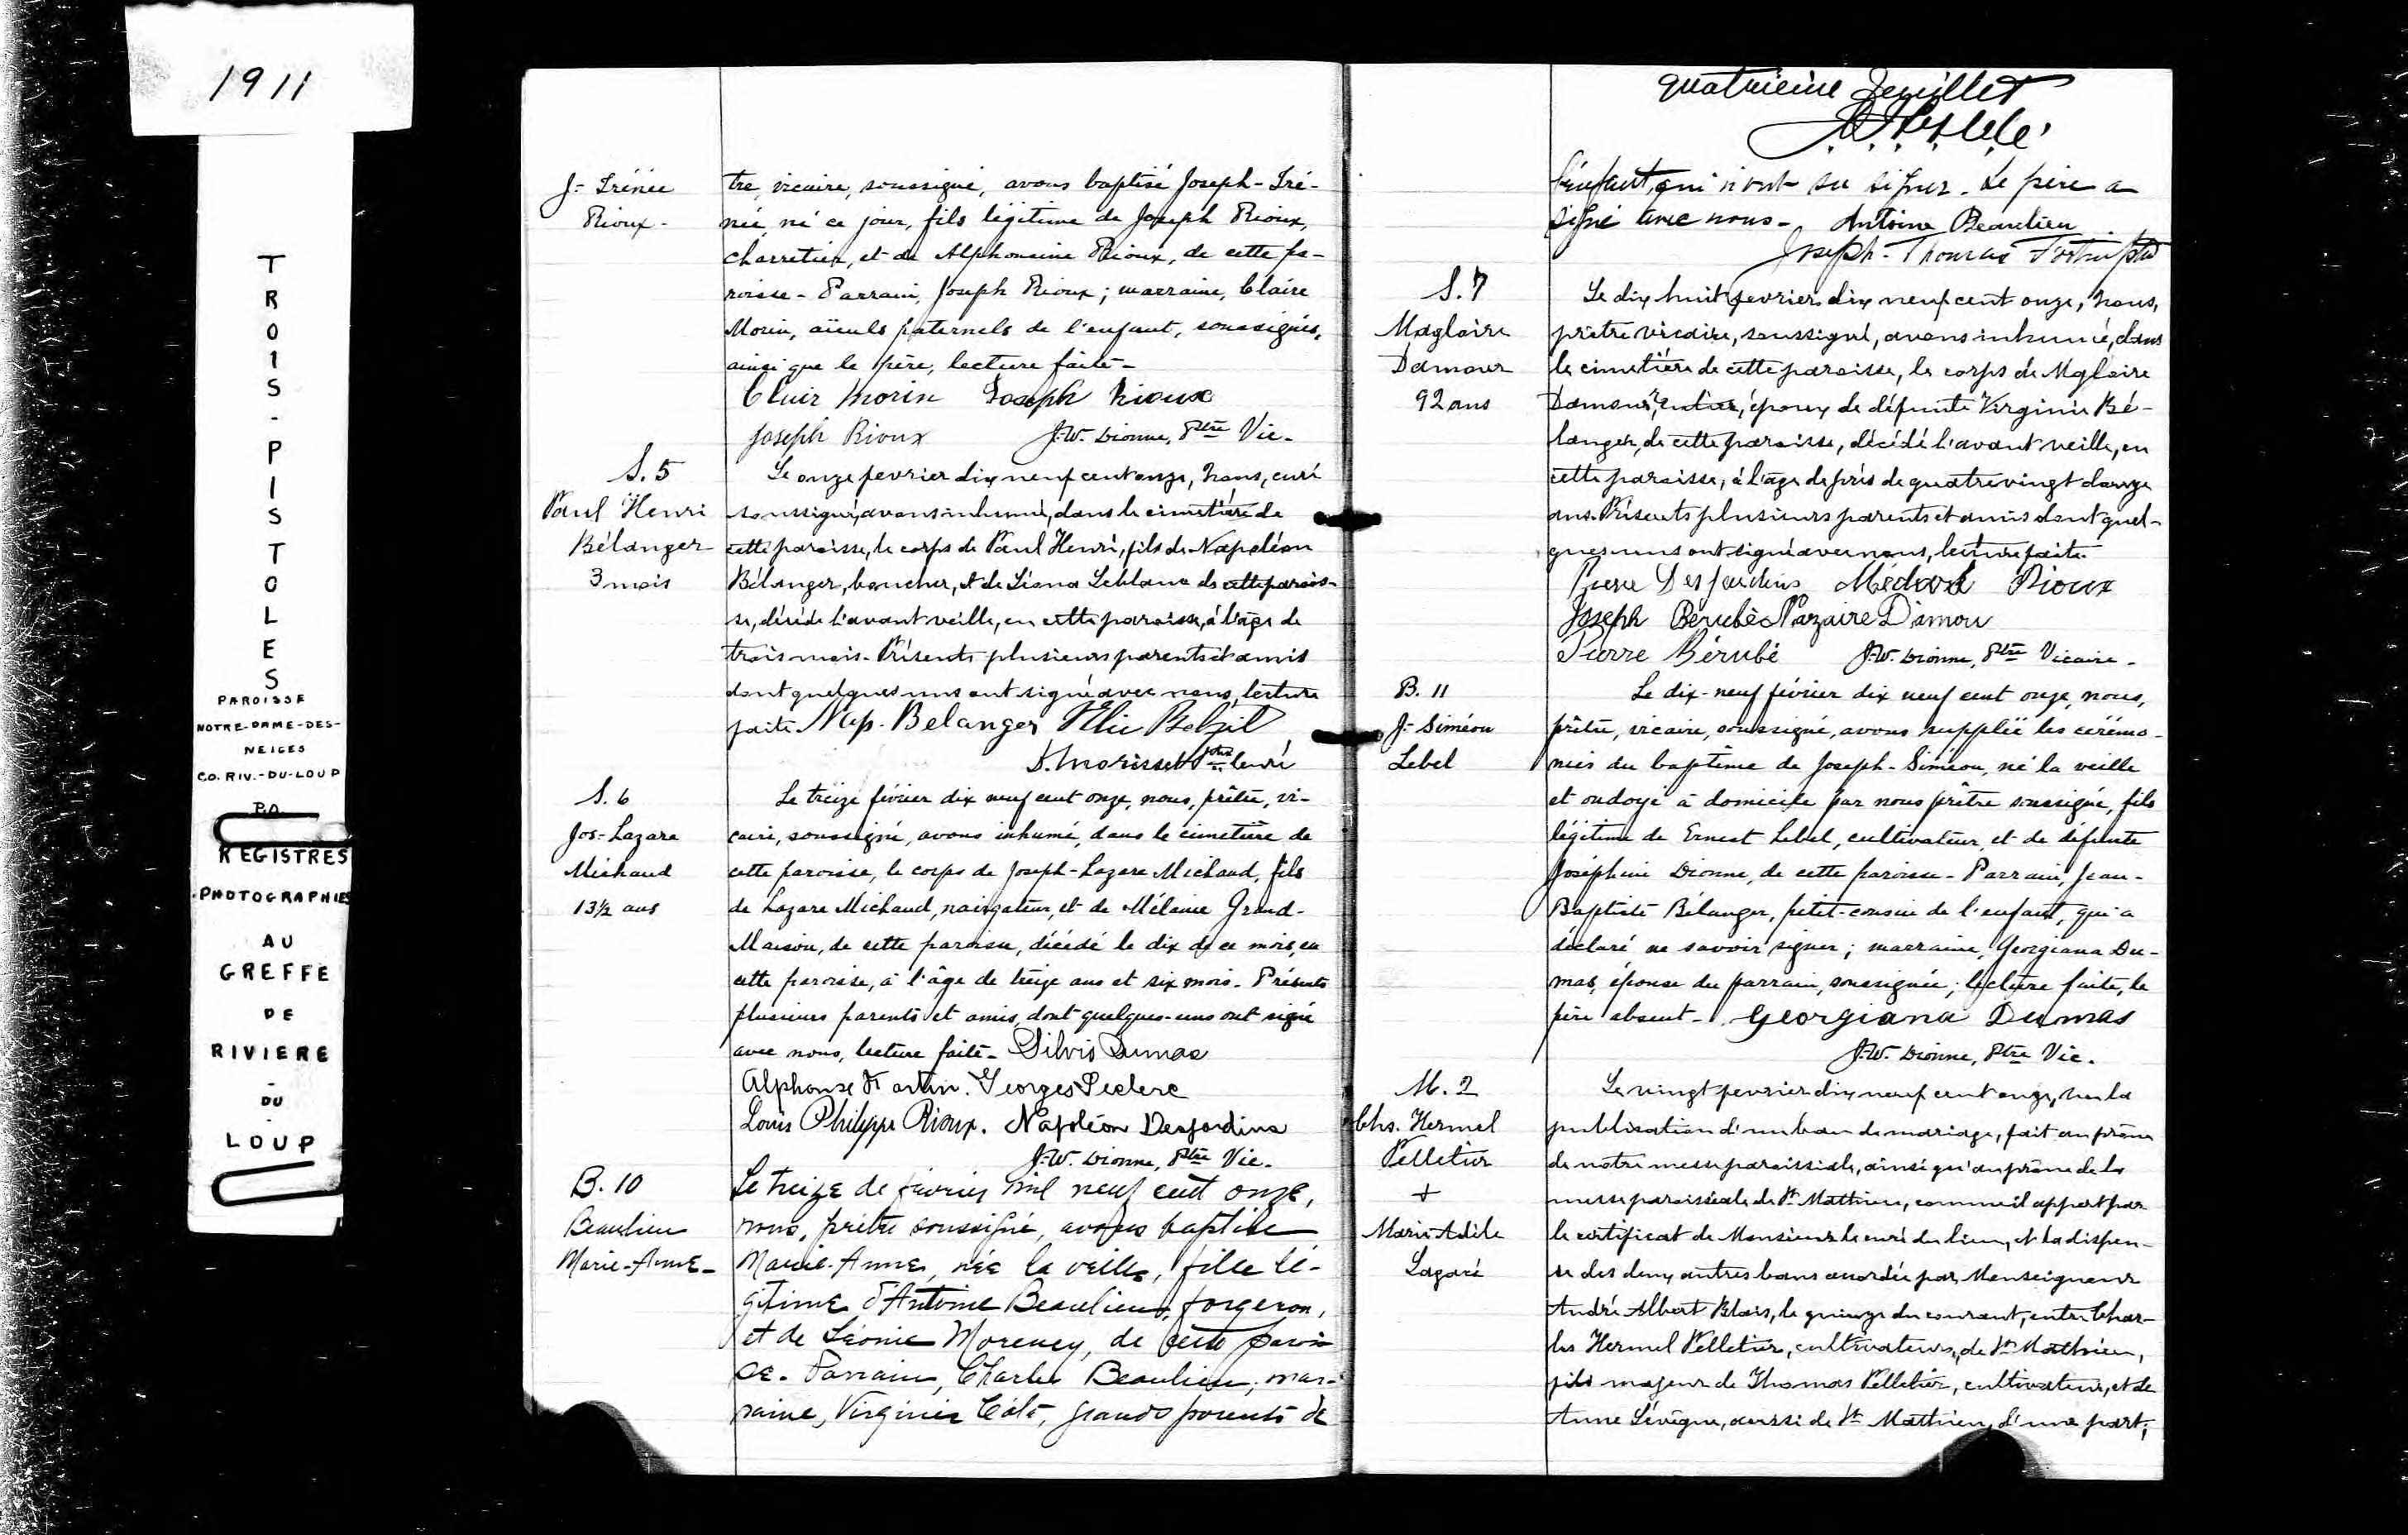 1911
TROIS-PISTOLES
PAROISSE
NOTRE-DAME-DES-
NEIGES
CO. RIV.-DU-LOUP
P.Q.
REGISTRES
PHOTOGRAPHIES
AU
GREFFE
DE
RIVIERE
-
DU
-
LOUP
J-Irénée
Rioux-
tre, vicaire, soussigné, avons baptisé Joseph-Iré-
née, né ce jour, fils légitime de Joseph Rioux,
charretier, et de Alphonsine Rioux, de cette pa-
roisse- Parrain, Joseph Rioux; marraine, Claire
Morin, aïeuls paternels de l'enfant, soussignés,
ainsi que le père, lecture faite-
Clair Morin Joseph Rioux
Joseph Rioux J.-W. Dionne, Ptre Vic.
S. 5
Paul Henri
Bélanger
3 mois
Le onze fevrier dix neuf cent onze, Nous, curé
soussigné, avons inhumé, dans le cimetière de
cette paroisse, le corps de Paul Henri, fils de Napoléon
Bélanger, boucher, et de Léona Leblanc de cette parois-
se, décédé l'avant veille, en cette paroisse, à l'âge de
trois mois. Présents plusieurs parents et amis
dont quelques uns ont signé avec nous, lecture
faite. Nap. Belanger Elie Belzil
D. Morisset Ptre Curé
S. 6
Jos-Lazare
Michaud
13½ ans
Le treize février dix neuf cent onze, nous, prêtre, vi-
caire, soussigné, avons inhumé, dans le cimetière de
cette paroisse, le corps de Joseph-Lazare Michaud, fils
de Lazare Michaud, navigateur, et de Mélanie Grand-
Maison, de cette paroisse, décédé le dix de ce mois, en
cette paroisse, à l'âge de treize ans et six mois. Présents
plusieurs parents et amis, dont quelques-uns ont signé
avec nous, lecture faite- Silvis Dumas
Alphonse Fortin. Georges Leclerc
Louis Philippe Rioux. Napoléon Desjardins
J.-W. Dionne, Ptre Vic.
B. 10
Beaulieu
Marie-Anne-
Le treize de fevrier mil neuf cent onze,
nous, prêtre soussigné, avons baptisé
Marie-Anne, née la veille, fille lé-
gitime d'Antoine Beaulieu, forgeron,
et de Léonie Morency, de cette parois
se. Parrain, Charles Beaulieu; mar-
raine, Virginie Côté, grands parents de
quatrieme feuillet
l'enfant, qui n'ont su signer. Le père a
signé avec nous- Antoine Beaulieu
Joseph-Thomas Fortin ptre
S. 7
Magloire
Damour
92 ans
Le dix huit fevrier dix neuf cent onze, Nous,
prêtre vicaire, soussigné, avons inhumé, dans
le cimetière de cette paroisse, le corps de Magloire
Damour, rentier, époux de défunte Virginie Bé-
langer, de cette paroisse, décédé l'avant veille, en
cette paroisse, à l'âge de près de quatre vingt douze
ans. Présents plusieurs parents et amis dont quel-
ques uns ont signé avec nous, lecture faite.
Pierre Desjardins Médard Rioux
Joseph Bérubé Nazaire D'amou
Pierre Bérubé J.-W. Dionne, Ptre Vicaire.
B. 11
J-Siméon
Lebel
Le dix-neuf février dix neuf cent onze, nous,
prêtre, vicaire, soussigné, avons suppléé les cérémo-
nies du baptême de Joseph-Siméon, né la veille
et ondoyé à domicile par nous prêtre soussigné, fils
légitime de Ernest Lebel, cultivateur, et de défunte
Joséphine Dionne, de cette paroisse- Parrain, Jean-
Baptiste Bélanger, petit-cousin de l'enfant, qui a
déclaré ne savoir signer; marraine, Georgiana Du-
mas, épouse du parrain, soussignée; lecture faite, le
père absent- Georgiana Dumas
J.-W. Dionne, Ptre Vic.
M. 2
Chs. Hermel
Pelletier
+
Marie Adèle
Lagacé
Le vingt fevrier dix neuf cent onze, vu la
publication d'un ban de mariage, fait au prône
de notre messe paroissiale, ainsi qu'au prône de la
messe paroissiale de St Mathieu, comme il appert par
le certificat de Monsieur le curé du lieu, et la dispen-
se des deux autres bans accordée par Monseigneur
André Albert Blais, le quinze du courant, entre Char-
les Hermel Pelletier, cultivateur, de St Mathieu,
fils majeur de Thomas Pelletier, cultivateur, et de
Anne Lévêque, aussi de St Mathieu, d'une part;